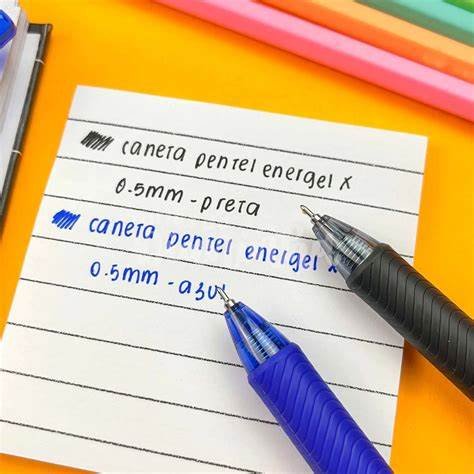 caneta pentel energel x
0.5mm - preta
caneta pentel energel x
0.5mm - azul